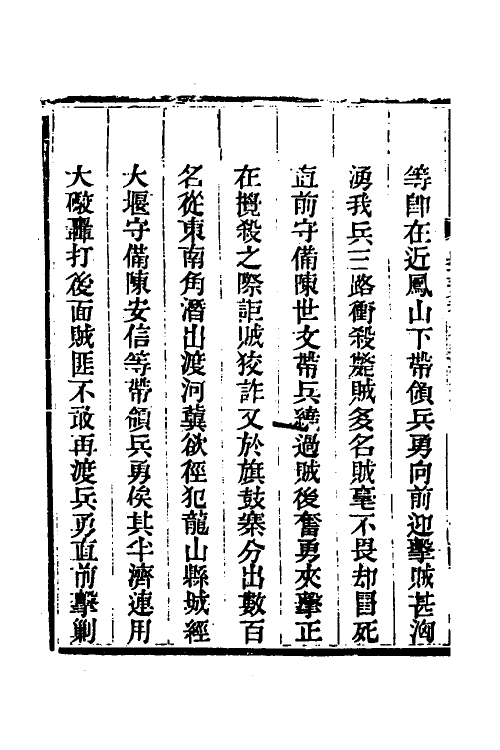 等卽在近鳳山下帶領兵勇向前迎擊賊甚洶
湧我兵三路衝殺斃賊多名賊毫不畏却冒死
直前守備陳世文帶兵繞過賊後奮勇夾擊正
在攪殺之際詎賊狡詐又於旗鼓寨分出數百
名從東南角潛出渡河冀欲徑犯龍山縣城經
大堰守備陳安信等帶領兵勇俟其半濟連用
大礮轟打後面賊匪不敢再渡兵勇直前擊剿